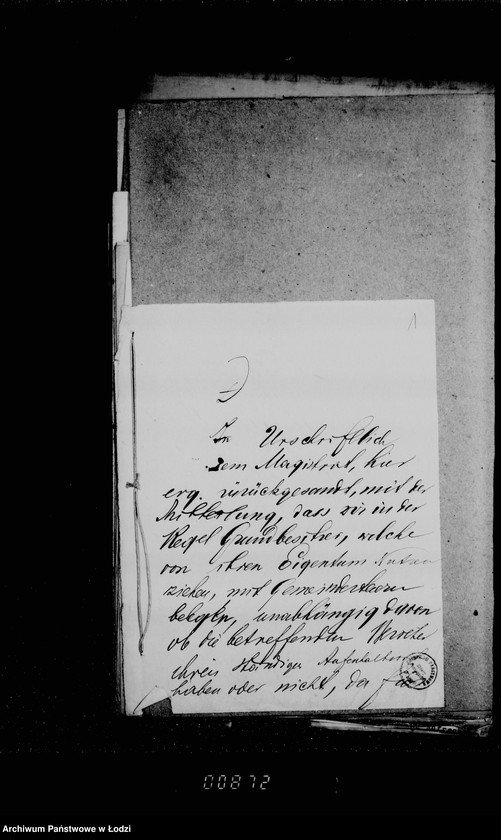 1
Urschriftlich
dem Magistrat, hier
erg. zurückgesandt, mit der
Mitteilung, dass wir in der
Regel Grundbesitzer, welche
von ihren Eigentum Nutzen
ziehen, mit Gemeindesteuern
belegen, unabhängig davon
ob die betreffenden
ihren ständigen Aufenthalt
haben oder nicht, da
00872
Archiwum Państwowe w Łodzi